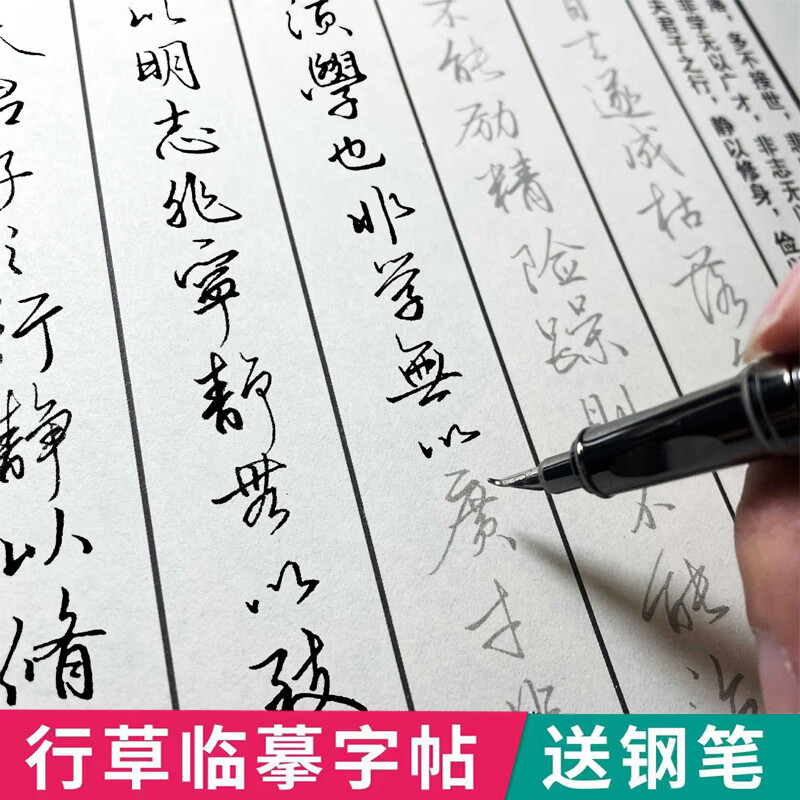 夫君子之行静以脩
以明志非寧静無以致
須學也非学無以廣才非
不能励精险躁则不能治
日去遂成枯落
夫君子之行，静以修身，俭以
非学无以广才，非志无以
落，多不接世，悲
行草临摹字帖
送钢笔